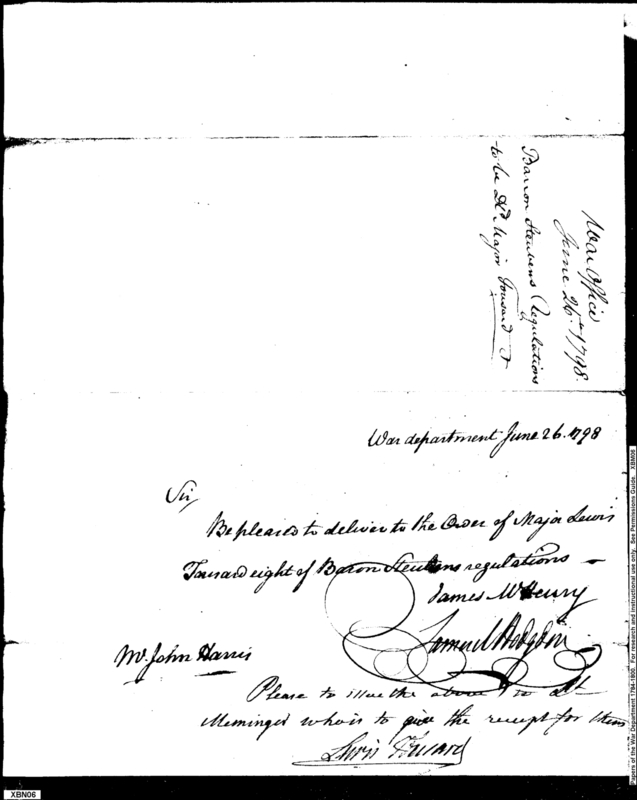 War Office
June 26th 1798.
Barron Steubens Regulations
to be Dd Major Tousard
War department June 26. 1798
Sir
Be pleased to deliver to the Order of Major Lewis
Tousard eight of Baron Steubens regulations —
James McHenry
Samuel Hodgdon
Mr. John Harris
Please to issue the above to Lt
Meminger who is to give the receipt for them
Lewis Tousard
Papers of the War Department 1784-1800. For research and instructional use only. See Permissions Guide. XBM06
XBN06